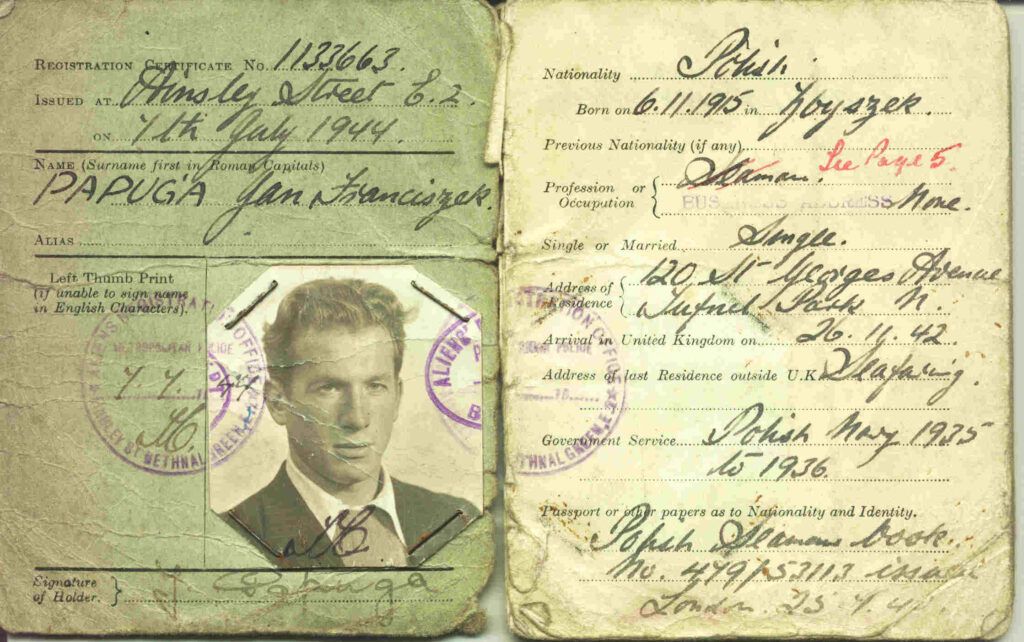 REGISTRATION CERTIFICATE No. 1133663.
ISSUED AT Ainsley Street E.2.
ON 7th July 1944.
NAME (Surname first in Roman Capitals)
PAPUGA Jan Franciszek.
ALIAS
Left Thumb Print
(if unable to sign name
in English Characters).
ALIENS REGISTRATION OFFICE
METROPOLITAN POLICE
7 7
AINSLEY ST BETHNAL GREEN E.2
ALIENS
Signature
of Holder.
J. Papuga
Nationality Polish
Born on 6.11.1915 in Zbyszek.
Previous Nationality (if any)
See Page 5.
Profession or
Occupation
Seaman.
BUSINESS ADDRESS None.
Single or Married Single.
Address of
Residence
120, St Georges Avenue
Tufnel Park N.
Arrival in United Kingdom on 26.11.42.
Address of last Residence outside U.K. Seafaring.
Government Service Polish Navy 1935
to 1936.
Passport or other papers as to Nationality and Identity.
Polish Seamans Book
No. 479/53113 issued
London 25.4.